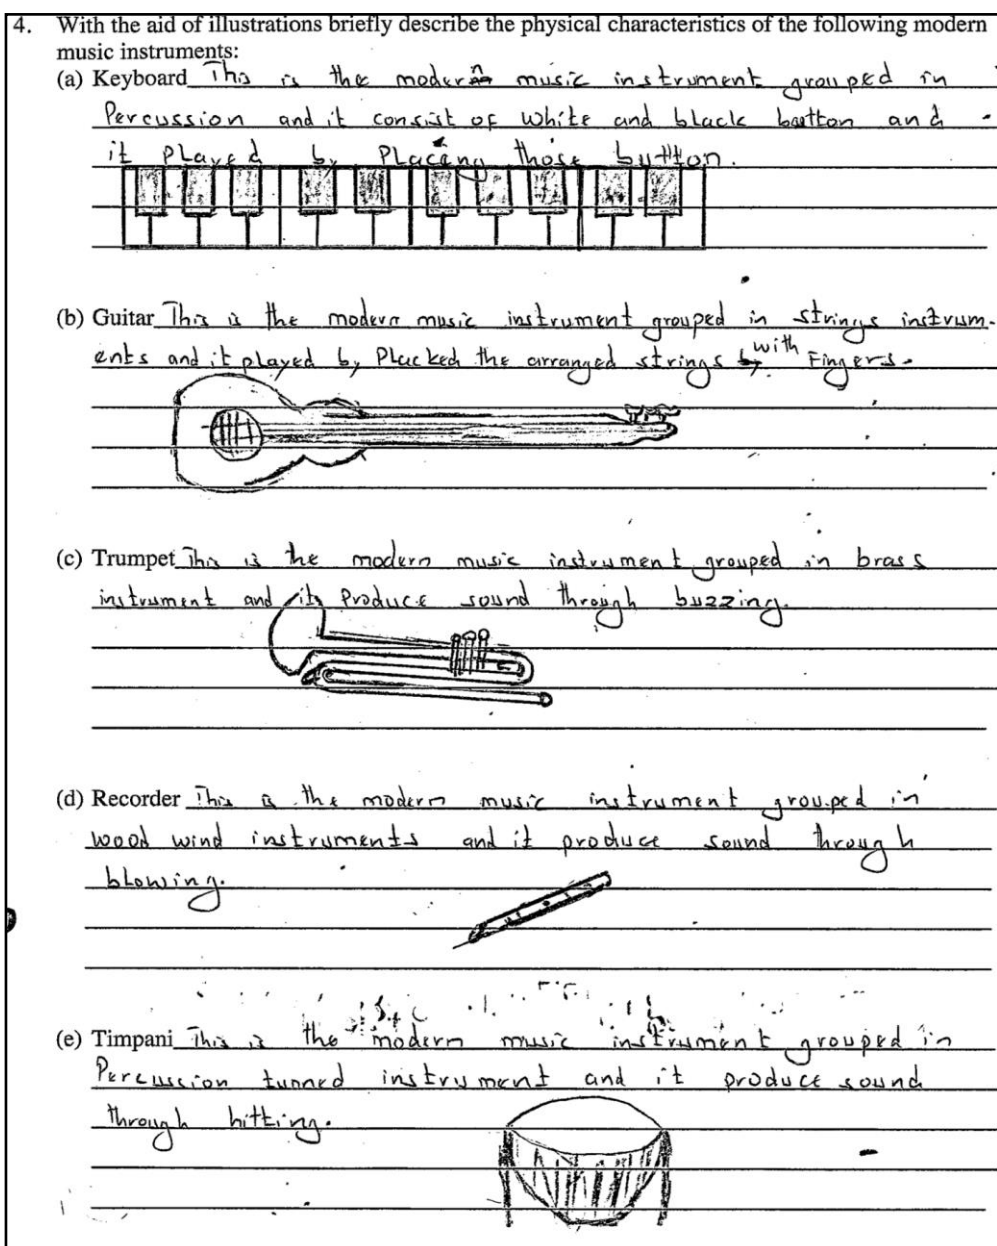 4. With the aid of illustrations briefly describe the physical characteristics of the following modern
music instruments:
(a) Keyboard This is the modern music instrument grouped in
Percussion and it consist of white and black button and
it Played by Placing those button.
(b) Guitar This is the modern music instrument grouped in strings instrum-
ents and it played by Plucked the arranged strings with Fingers.
(c) Trumpet This is the modern music instrument grouped in brass
instrument and its Produce sound through buzzing.
(d) Recorder This is the modern music instrument grouped in
wood wind instruments and it produce sound through
blowing.
(e) Timpani This is the modern music instrument grouped in
Percussion tunned instrument and it produce sound
through hitting.